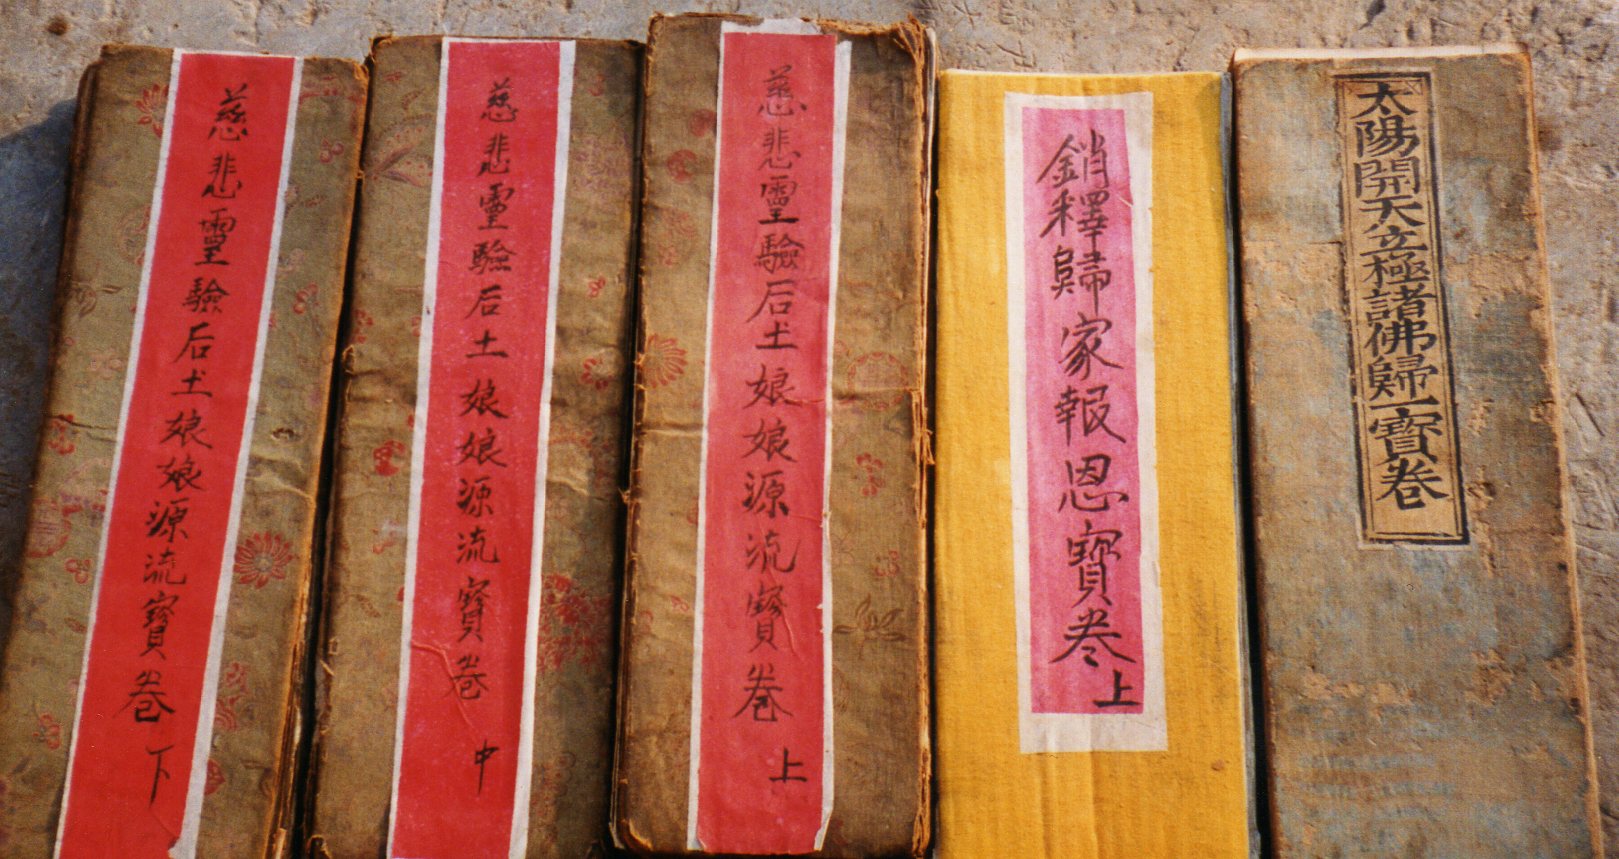 太陽開天立極諸佛歸一寶卷
銷釋歸家報恩寶卷上
慈悲靈驗后土娘娘源流寶卷 上
慈悲靈驗后土娘娘源流寶卷 中
慈悲靈驗后土娘娘源流寶卷 下